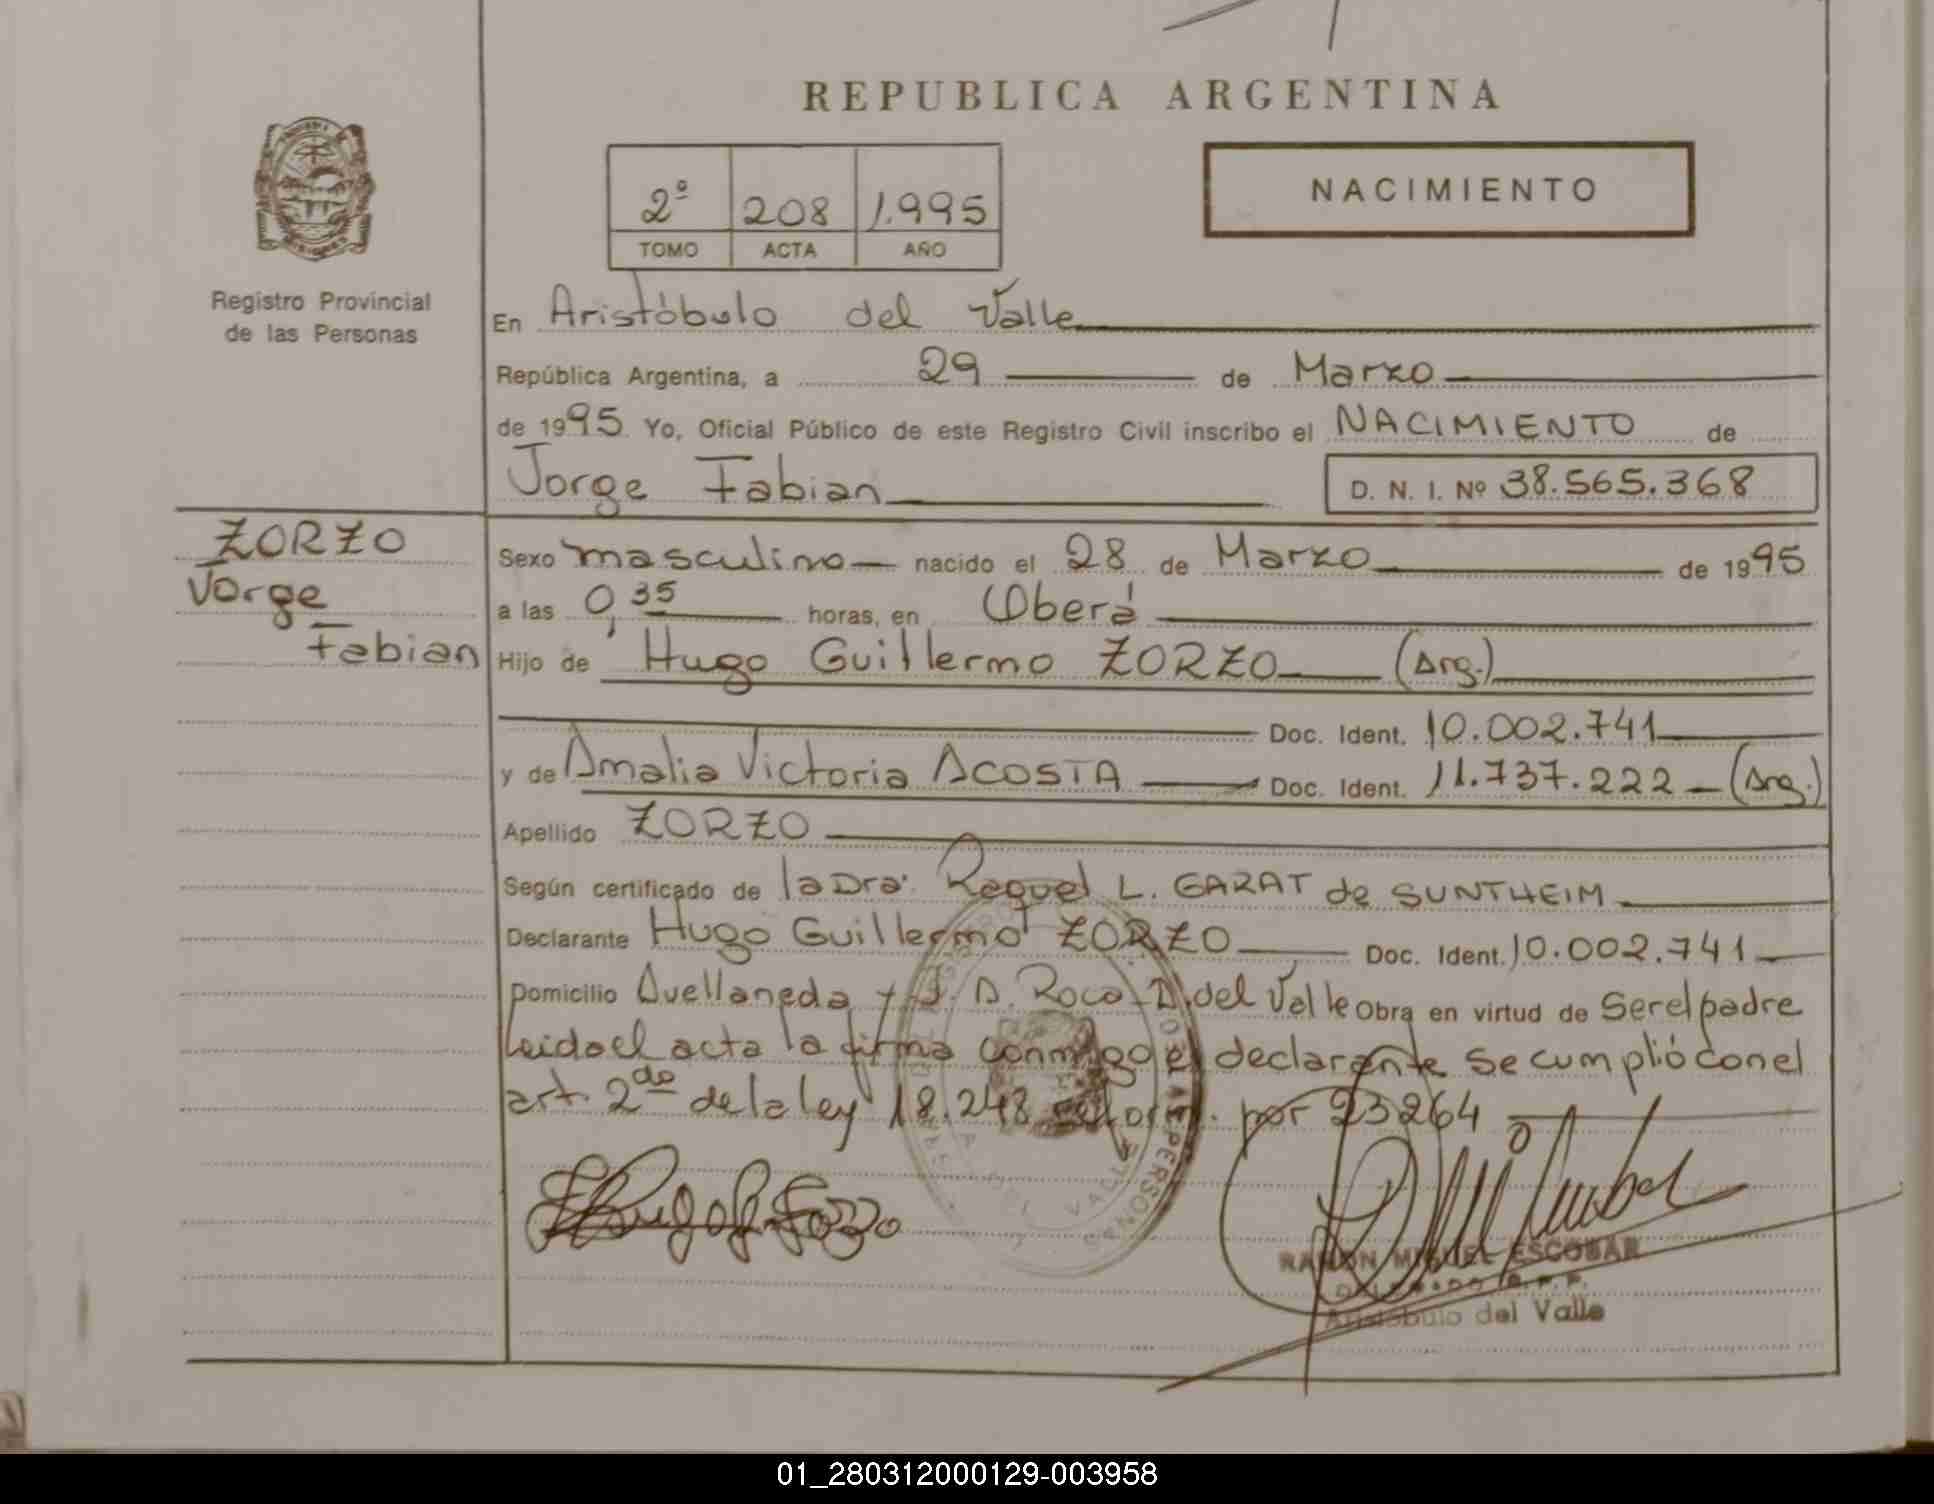 REPUBLICA ARGENTINA
2º 208 1.995
TOMO ACTA AÑO
NACIMIENTO
Registro Provincial
de las Personas
En Aristóbulo del Valle
República Argentina, a 29 de Marzo
de 1995 Yo, Oficial Público de este Registro Civil inscribo el NACIMIENTO de
Jorge Fabian D. N. I. Nº 38.565.368
ZORZO
Jorge
Fabian
Sexo masculino nacido el 28 de Marzo de 1995
a las 0,35 horas, en Oberá
Hijo de Hugo Guillermo ZORZO (Arg.)
Doc. Ident. 10.002.741
y de Amalia Victoria ACOSTA Doc. Ident. 11.737.222 (Arg.)
Apellido ZORZO
Según certificado de la Dra. Raquel L. GARAT de SUNTHEIM
Declarante Hugo Guillermo ZORZO Doc. Ident. 10.002.741
Domicilio Avellaneda y J. A. Roca A. del Valle Obra en virtud de Ser el padre
Leida el acta la firma conmigo el declarante se cumplió con el
art. 2do de la ley 18.248 reform. por 23264
RAMON MIGUEL ESCOBAR
Aristóbulo del Valle
01_280312000129-003958